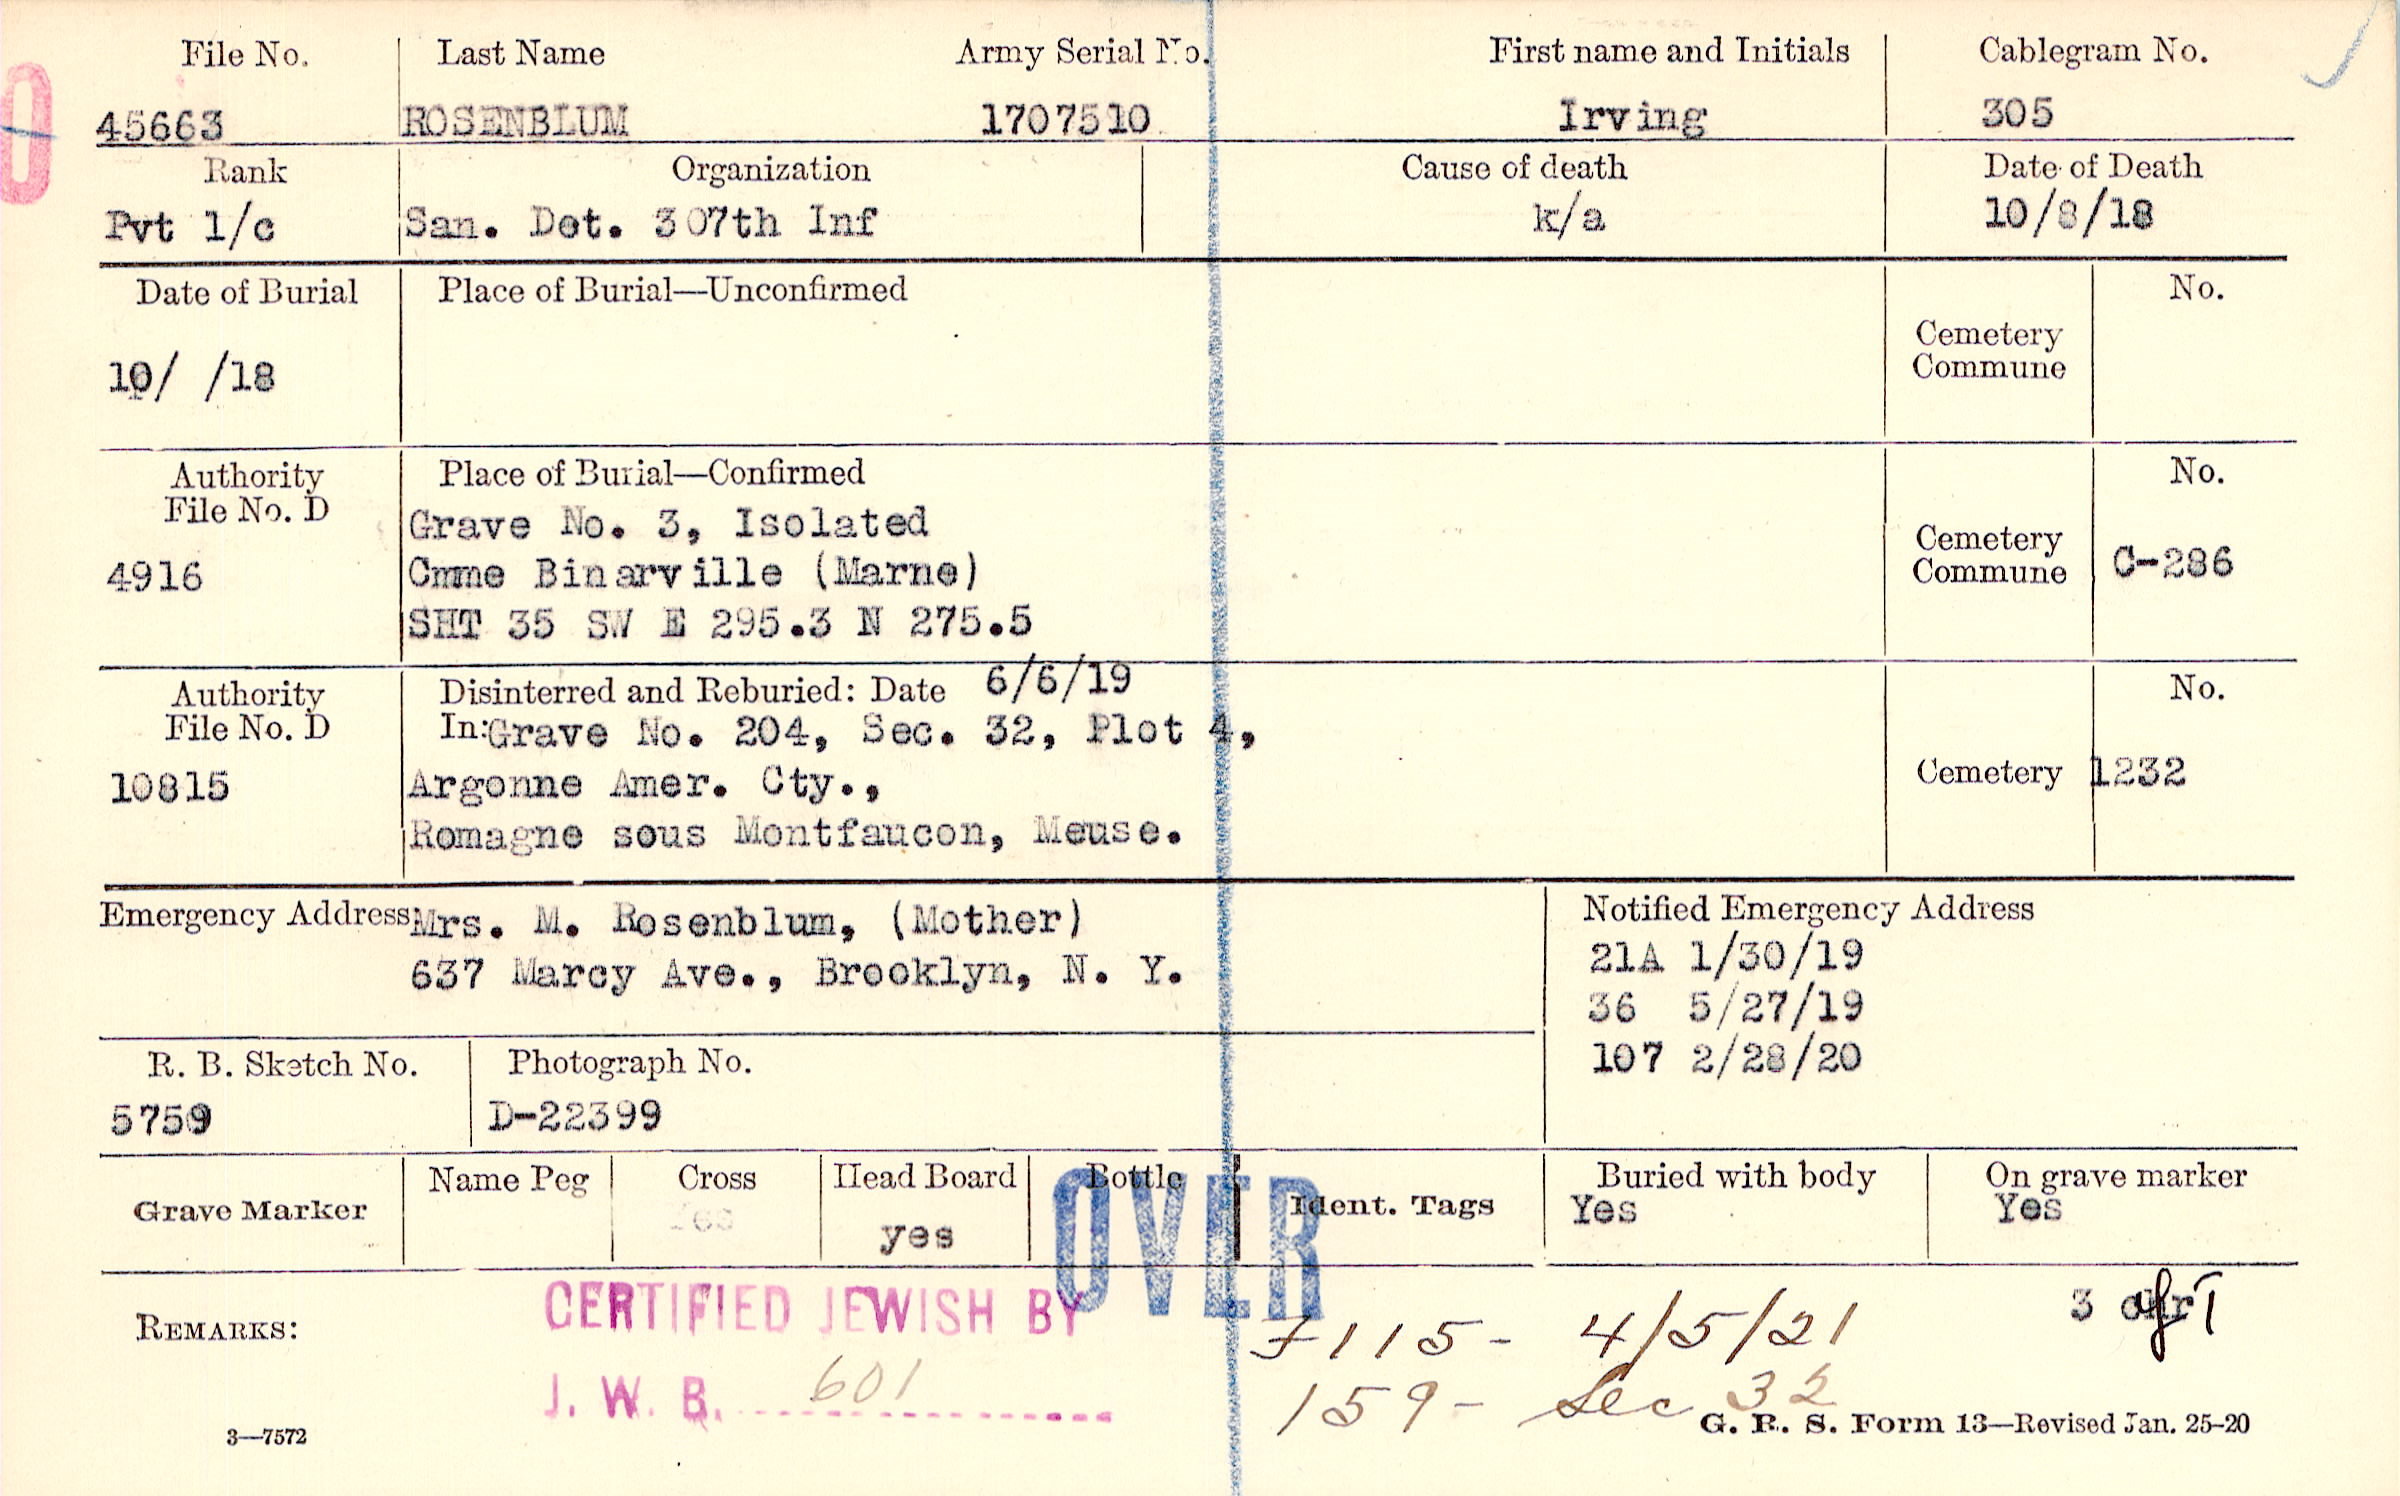 File No. Last Name Army Serial No. First name and Initials Cablegram No.
45663 ROSENBLUM 1707510 Irving 305
Rank Organization Cause of death Date of Death
Pvt 1/c San. Det. 307th Inf k/a 10/8/18
Date of Burial Place of Burial—Unconfirmed No.
Cemetery
Commune
10/ /18
Authority Place of Burial—Confirmed No.
File No. D
Grave No. 3, Isolated
4916 Cmme Binarville (Marne) Cemetery
Commune C-286
SHT 35 SW E 295.3 N 275.5
Authority Disinterred and Reburied: Date 6/6/19 No.
File No. D In: Grave No. 204, Sec. 32, Plot 4,
10815 Argonne Amer. Cty., Cemetery 1232
Romagne sous Montfaucon, Meuse.
Emergency Address: Mrs. M. Rosenblum, (Mother) Notified Emergency Address
637 Marcy Ave., Brooklyn, N. Y. 21A 1/30/19
36 5/27/19
107 2/28/20
R. B. Sketch No. Photograph No.
5759 D-22399
Grave Marker Name Peg Cross Head Board Bottle Ident. Tags Buried with body On grave marker
Yes yes Yes Yes
OVER
REMARKS: CERTIFIED JEWISH BY 7115- 4/5/21 3
J. W. B. 601 159- Sec 32
3—7572 G. R. S. Form 13—Revised Jan. 25-20